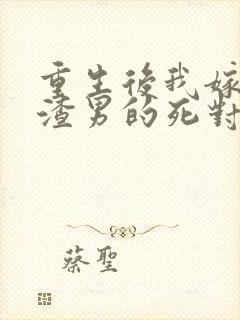 重生後我嫁
渣男的死對
蔡聖